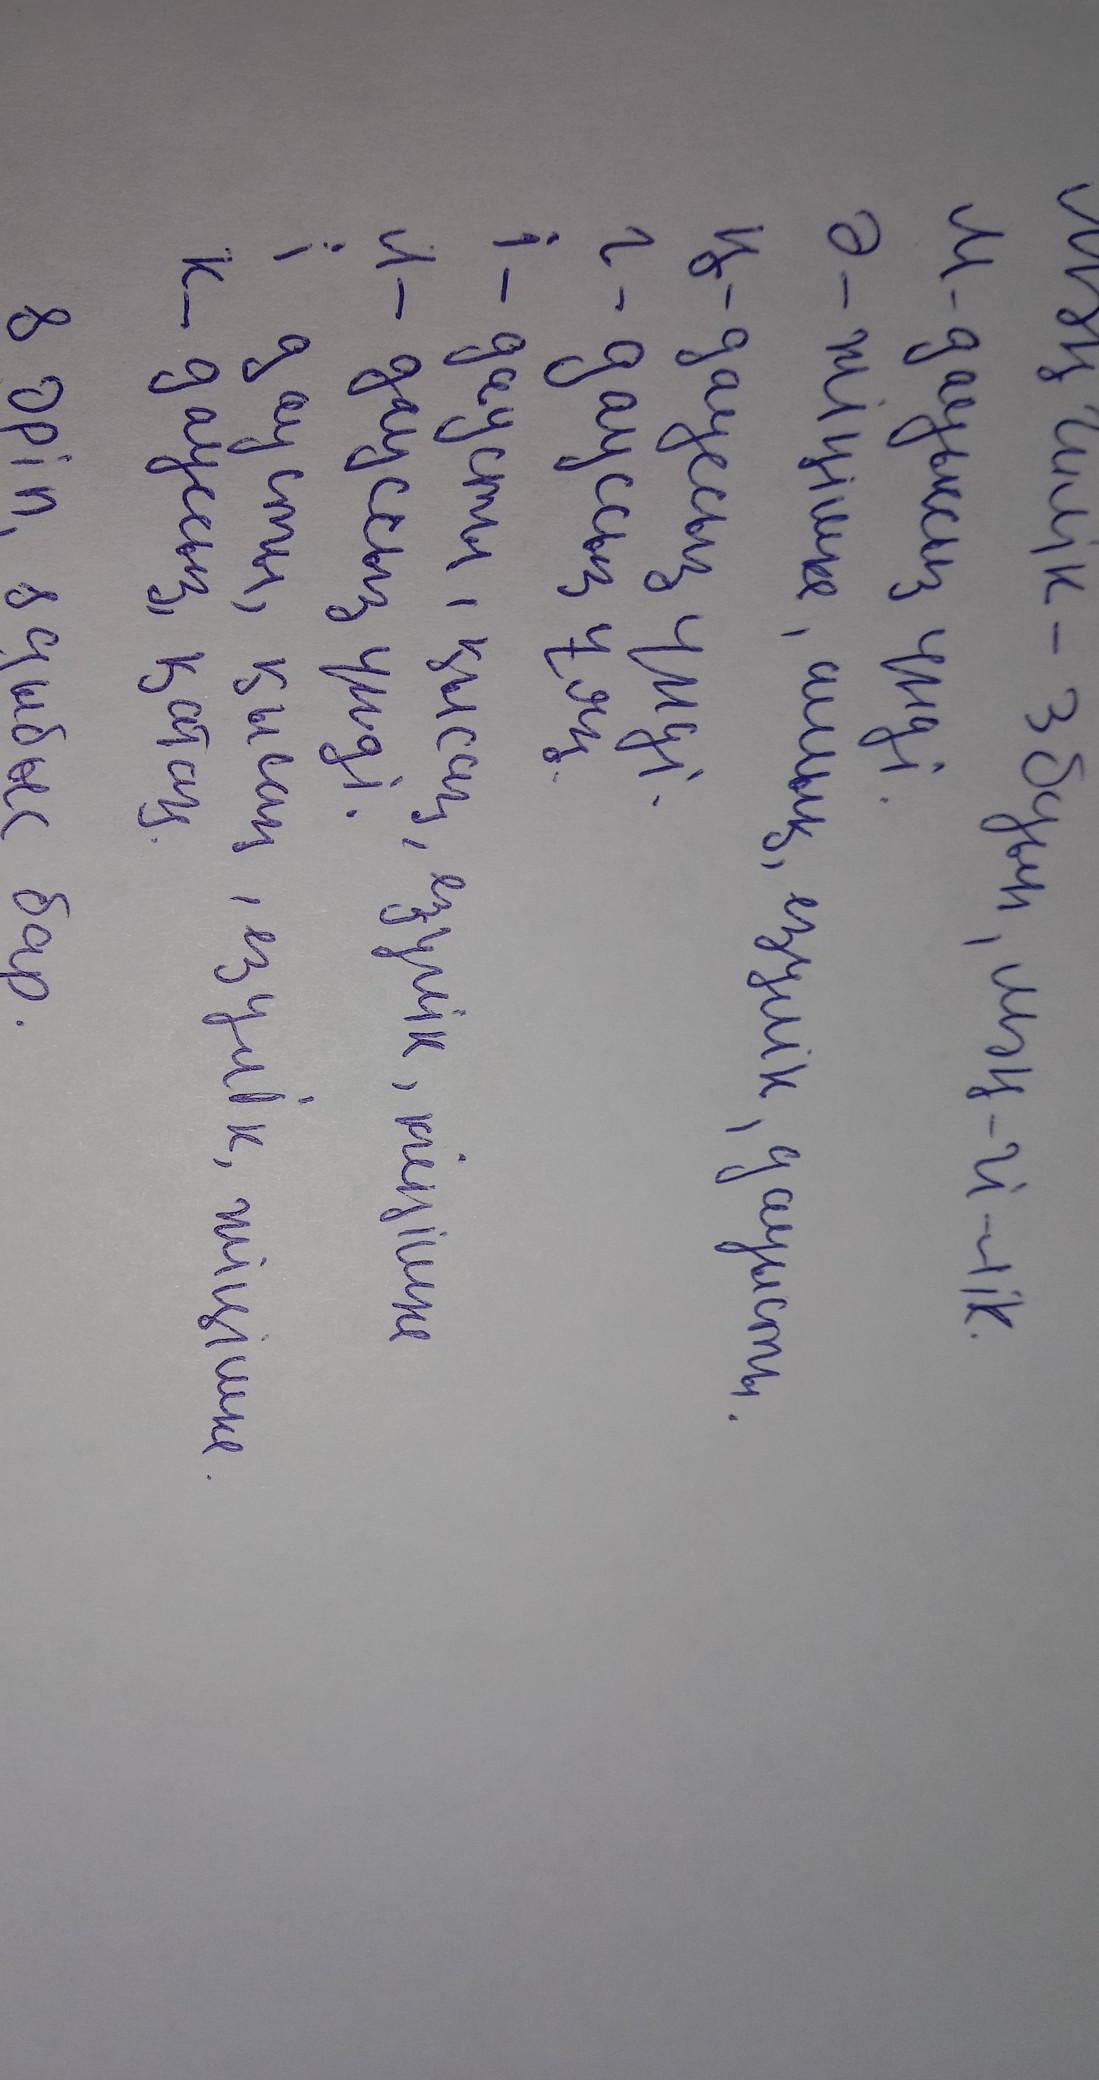 Мәңгілік - 3 буын, мәң-гі-лік.
М - дауыссыз үнді.
Ә - жіңішке, ашық, езулік, дауысты.
ң - дауссыз үнді.
г - дауссыз ұяң.
і - даусты, қысаң, езулік, жіңішке
л - дауссыз үнді.
і даусты, қысаң, езулік, жіңішке.
к - дауссыз, қатаң.
8 әріп, 8 дыбыс бар.